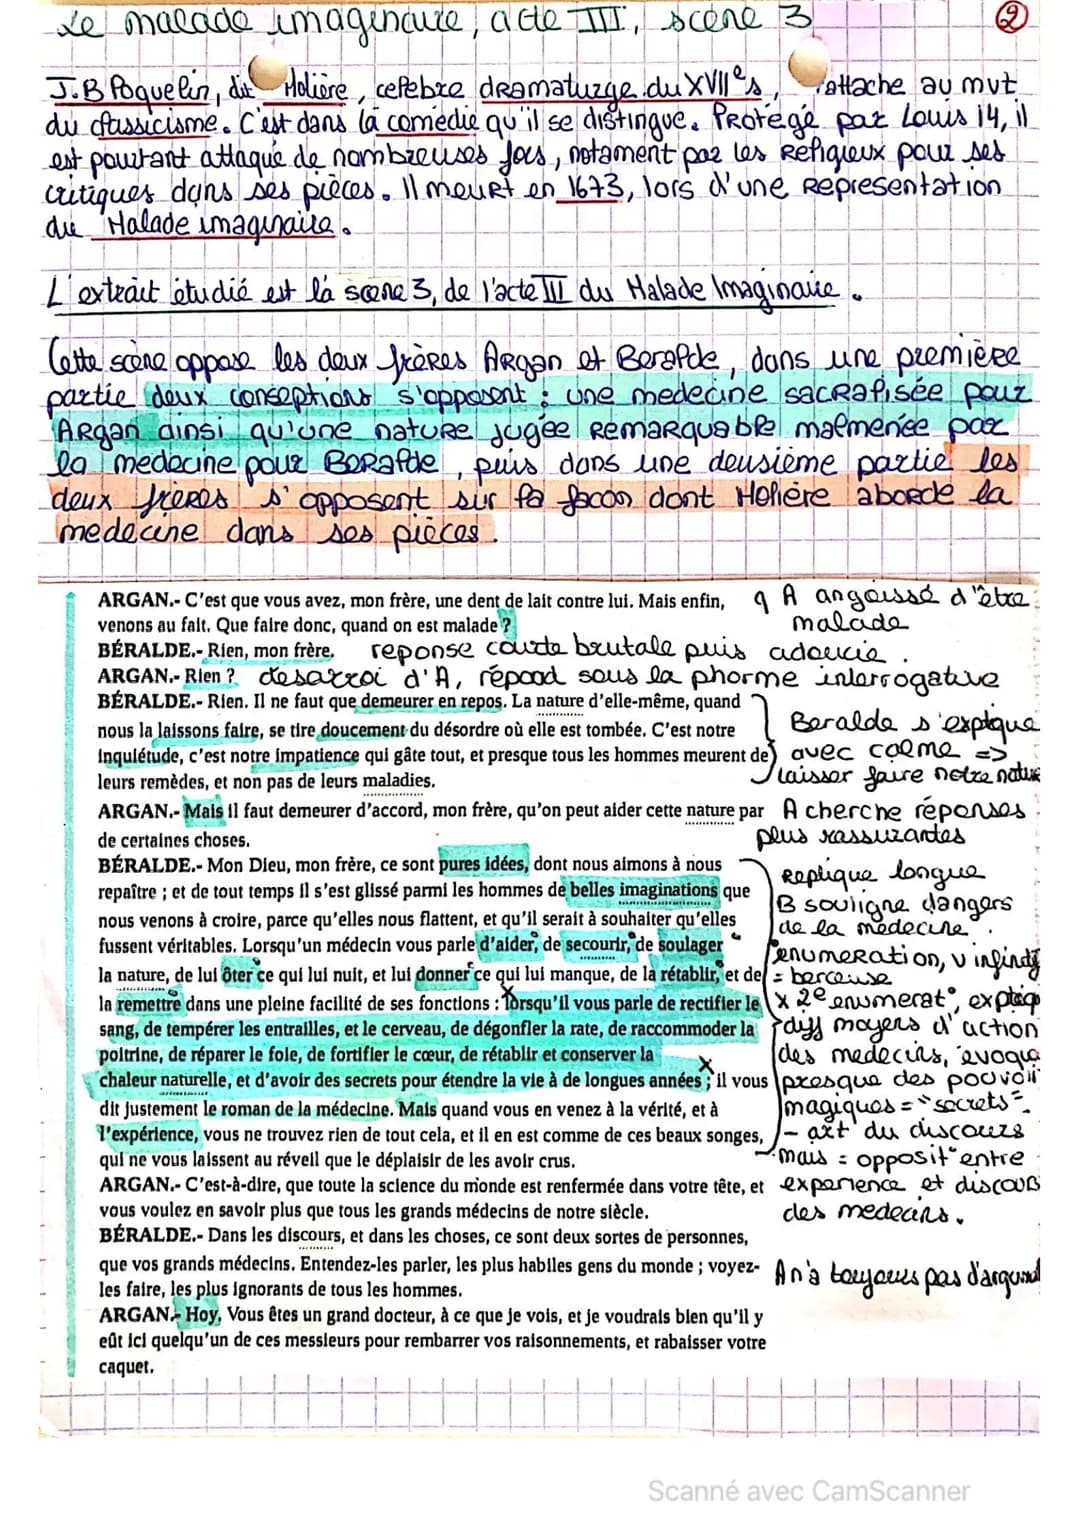 Le malade imaginaire, acte III, scène 3 ②
J.B Poquelin, dit Molière, celebre dramaturge du XVII^e s, rattache au mvt
du classicisme. C'est dans la comédie qu'il se distingue. Protégé par Louis 14, il
est pourtant attaqué de nombreuses fois, notament par les Religieux pour ses
critiques dans ses pièces. Il meurt en 1673, lors d'une Representation
du Malade imaginaire.
L'extrait étudié est la scene 3, de l'acte III du Malade Imaginaire.
Cette scène oppose les deux frères Argan et Beralde, dans une première
partie deux conseptions s'opposent : une medecine sacralisée pour
Argan ainsi qu'une nature jugée remarquable malmenée par
la medecine pour Beralde, puis dans une deusième partie les
deux frères s'opposent sur la facon dont Molière aborde la
medecine dans ses pièces.
ARGAN.- C'est que vous avez, mon frère, une dent de lait contre lui. Mais enfin,
venons au fait. Que faire donc, quand on est malade ?
q A angoissé d'être
malade
BÉRALDE.- Rien, mon frère. reponse courte brutale puis adoucie.
ARGAN.- Rien ? desarroi d'A, répond sous la phorme interrogative
BÉRALDE.- Rien. Il ne faut que demeurer en repos. La nature d'elle-même, quand
nous la laissons faire, se tire doucement du désordre où elle est tombée. C'est notre
inquiétude, c'est notre impatience qui gâte tout, et presque tous les hommes meurent de
leurs remèdes, et non pas de leurs maladies.
Beralde s'explique
avec calme =>
laisser faire notre nature
ARGAN.- Mais il faut demeurer d'accord, mon frère, qu'on peut aider cette nature par
de certaines choses.
A cherche réponses
plus rassurantes
BÉRALDE.- Mon Dieu, mon frère, ce sont pures idées, dont nous aimons à nous
repaître ; et de tout temps il s'est glissé parmi les hommes de belles imaginations que
nous venons à croire, parce qu'elles nous flattent, et qu'il serait à souhaiter qu'elles
fussent véritables. Lorsqu'un médecin vous parle d'aider, de secourir, de soulager
la nature, de lui ôter ce qui lui nuit, et lui donner ce qui lui manque, de la rétablir, et de
la remettre dans une pleine facilité de ses fonctions : lorsqu'il vous parle de rectifier le
sang, de tempérer les entrailles, et le cerveau, de dégonfler la rate, de raccommoder la
poitrine, de réparer le foie, de fortifier le cœur, de rétablir et conserver la
chaleur naturelle, et d'avoir des secrets pour étendre la vie à de longues années ; il vous
dit justement le roman de la médecine. Mais quand vous en venez à la vérité, et à
l'expérience, vous ne trouvez rien de tout cela, et il en est comme de ces beaux songes,
qui ne vous laissent au réveil que le déplaisir de les avoir crus.
Replique longue
B souligne dangers
de la médecine.
enumeration, v infinitif
= berceuse
x 2^e enumerat°, expliq
diff moyens d'action
des medecins, évoque
presque des pouvoir
magiques = "secrets".
- art du discours
mais = opposit° entre
experience et discours
des medecins.
ARGAN.- C'est-à-dire, que toute la science du monde est renfermée dans votre tête, et
vous voulez en savoir plus que tous les grands médecins de notre siècle.
BÉRALDE.- Dans les discours, et dans les choses, ce sont deux sortes de personnes,
que vos grands médecins. Entendez-les parler, les plus habiles gens du monde ; voyez-
les faire, les plus ignorants de tous les hommes.
A n'a toujours pas d'argument
ARGAN.- Hoy. Vous êtes un grand docteur, à ce que je vois, et je voudrais bien qu'il y
eût ici quelqu'un de ces messieurs pour rembarrer vos raisonnements, et rabaisser votre
caquet.
Scanné avec CamScanner